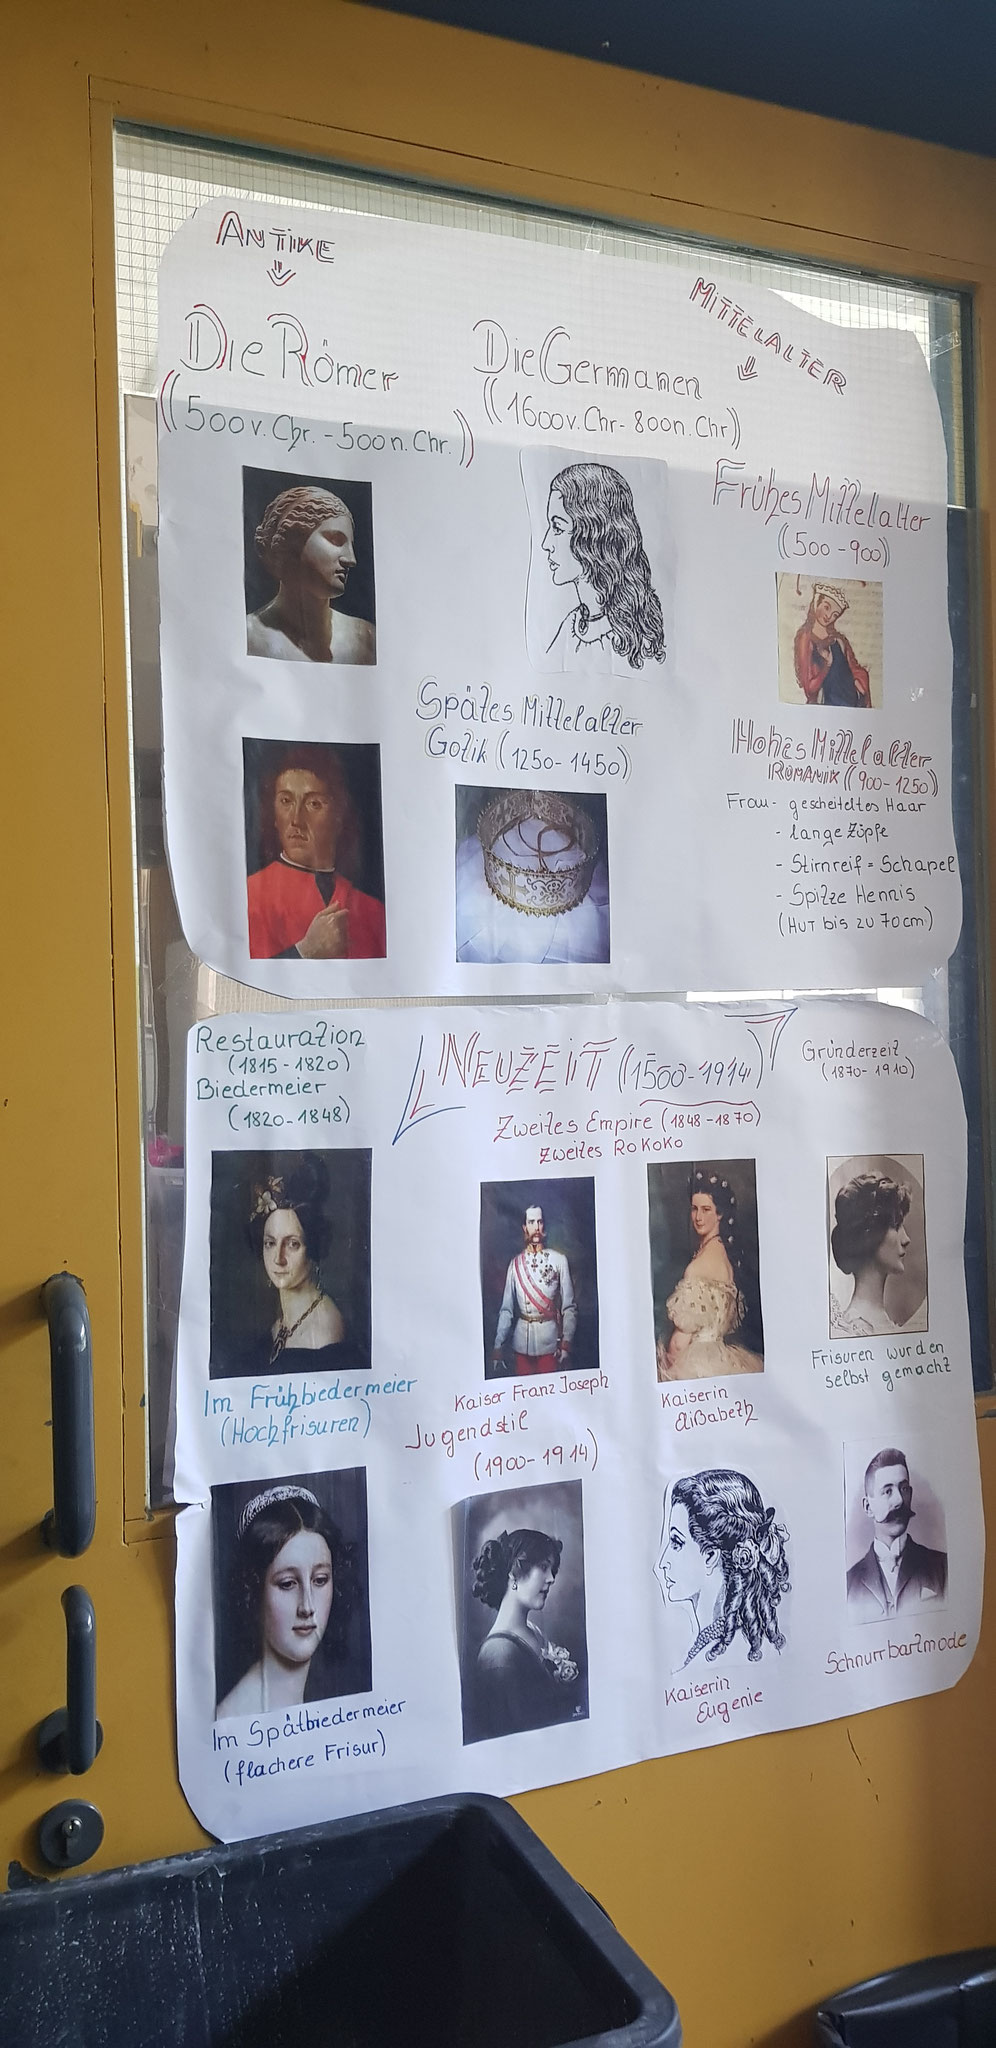 ANTIKE
Die Römer
(500 v. Chr. - 500 n. Chr.)
Die Germanen
(1600 v. Chr - 800 n. Chr)
MITTELALTER
Frühes Mittelalter
(500 - 900)
Spätes Mittelalter
Gotik (1250 - 1450)
Hohes Mittelalter
ROMANIK (900 - 1250)
Frau - gescheiteltes Haar
- lange Zöpfe
- Stirnreif = Schapel
- Spitze Hennis
(HUT bis zu 70 cm)
Restauration
(1815 - 1820)
Biedermeier
(1820 - 1848)
NEUZEIT (1500 - 1914)
Zweites Empire (1848 - 1870)
Zweites Rokoko
Gründerzeit
(1870 - 1910)
Im Frühbiedermeier
(Hochfrisuren)
Kaiser Franz Joseph
Kaiserin
Elisabeth
Frisuren wurden
selbst gemacht
Jugendstil
(1900 - 1914)
Im Spätbiedermeier
(flachere Frisur)
Kaiserin
Eugenie
Schnurrbartmode